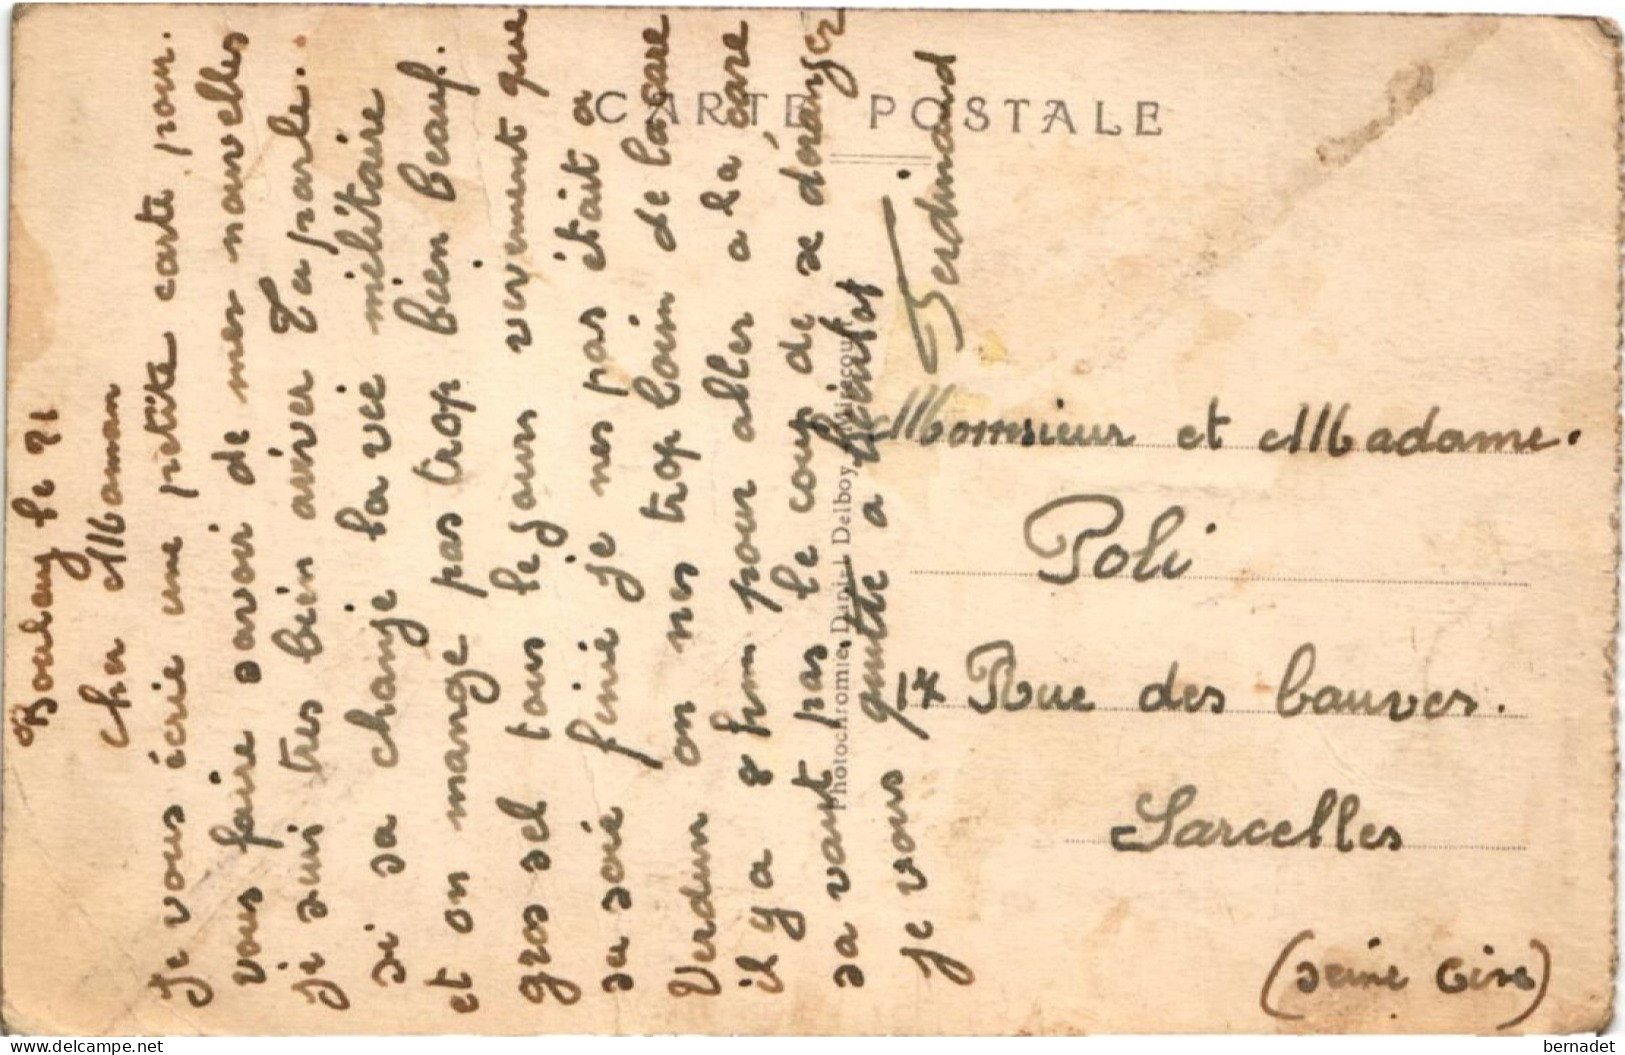 Boulay le 21
cher Maman
Je vous écrie une petite carte pour.
vous faire savoir de mes nouvelles
je suis tres bien arriver Ta parle..
si sa change la vie mélitaire
et on mange pas trop bien beauf..
gros sel tous le jours vivement que
se soie finie je nes pas était a
Verdun on nes trop loin de la gare
il y a 8 hum pour aller a la gare
sa vaut pas le coup de se déranger
je vous quitte a bientot
Ferdinand
CARTE POSTALE
Photochromie Daniel Delboy Mirecourt
Monsieur et Madame.
Poli
17 Rue des bauves.
Sarcelles
(seine Oise)
delcampe.net
bernadet